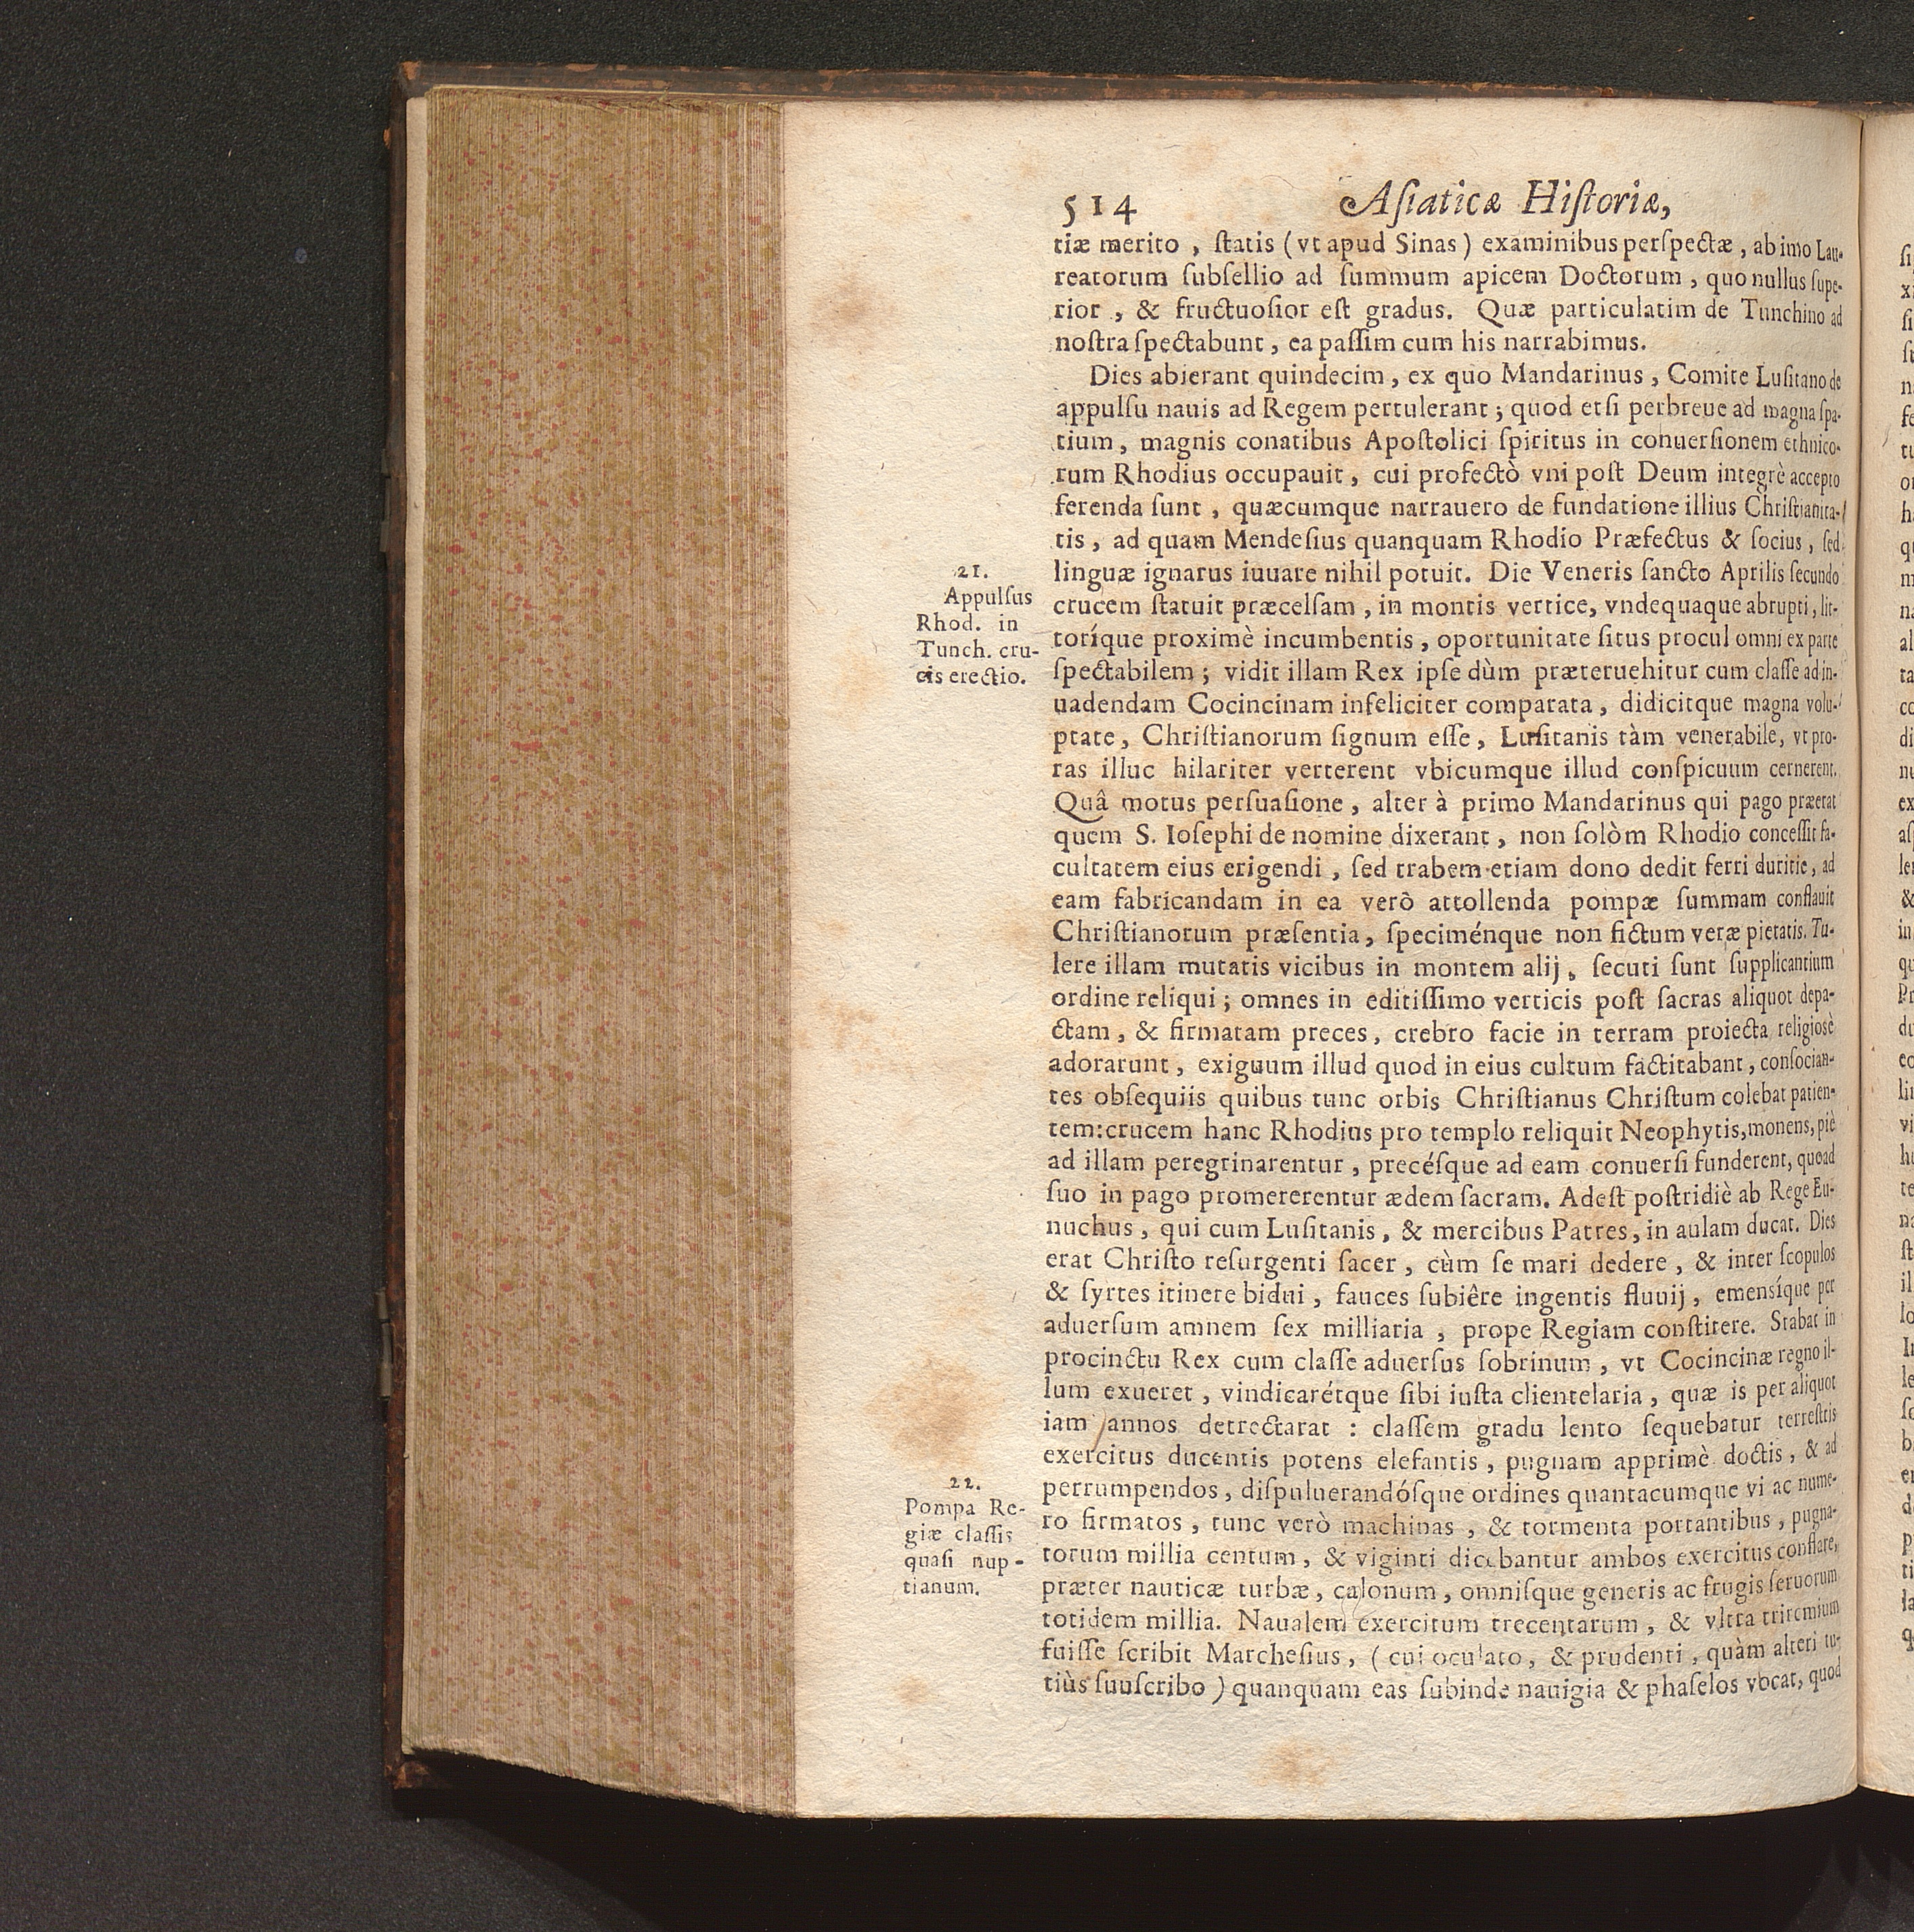 514 Asiaticæ Historiæ,
tiæ merito, statis (vt apud Sinas) examinibus perspectæ, ab imo Lau-
reatorum subsellio ad summum apicem Doctorum, quo nullus supe-
rior, & fructuosior est gradus. Quæ particulatim de Tunchino ad
nostra spectabunt, ea passim cum his narrabimus.
Dies abierant quindecim, ex quo Mandarinus, Comite Lusitano de
appulsu nauis ad Regem pertulerant; quod etsi perbreue ad magna spa-
tium, magnis conatibus Apostolici spiritus in conuersionem ethnico-
rum Rhodius occupauit, cui profectò vni post Deum integrè accepto
ferenda sunt, quæcumque narrauero de fundatione illius Christianita-
tis, ad quam Mendesius quanquam Rhodio Præfectus & socius, sed
linguæ ignarus iuuare nihil potuit. Die Veneris sancto Aprilis secundo
crucem statuit præcelsam, in montis vertice, vndequaque abrupti, lit-
toríque proximè incumbentis, oportunitate situs procul omni ex parte
spectabilem; vidit illam Rex ipse dùm præteruehitur cum classe ad in-
uadendam Cocincinam infeliciter comparata, didicitque magna volu-
ptate, Christianorum signum esse, Lusitanis tàm venerabile, vt pro-
ras illuc hilariter verterent vbicumque illud conspicuum cernerent.
Quâ motus persuasione, alter à primo Mandarinus qui pago præerat
quem S. Iosephi de nomine dixerant, non solòm Rhodio concessit fa-
cultatem eius erigendi, sed trabem etiam dono dedit ferri duritie, ad
eam fabricandam in ea verò attollenda pompæ summam conflauit
Christianorum præsentia, speciménque non fictum veræ pietatis. Tu-
lere illam mutatis vicibus in montem alij, secuti sunt supplicantium
ordine reliqui; omnes in editissimo verticis post sacras aliquot depa-
ctam, & firmatam preces, crebro facie in terram proiecta religiosè
adorarunt, exiguum illud quod in eius cultum factitabant, consocian-
tes obsequiis quibus tunc orbis Christianus Christum colebat patien-
tem: crucem hanc Rhodius pro templo reliquit Neophytis, monens, piè
ad illam peregrinarentur, precésque ad eam conuersi funderent, quoad
suo in pago promererentur ædem sacram. Adest postridiè ab Rege Eu-
nuchus, qui cum Lusitanis, & mercibus Patres, in aulam ducat. Dies
erat Christo resurgenti sacer, cùm se mari dedere, & inter scopulos
& syrtes itinere bidui, fauces subiêre ingentis fluuij, emensíque per
aduersum amnem sex milliaria, prope Regiam constitere. Stabat in
procinctu Rex cum classe aduersus sobrinum, vt Cocincinæ regno il-
lum exueret, vindicarétque sibi iusta clientelaria, quæ is per aliquot
iam annos detrectarat: classem gradu lento sequebatur terrestris
exercitus ducentis potens elefantis, pugnam apprimè doctis, & ad
perrumpendos, dispuluerandósque ordines quantacumque vi ac nume-
ro firmatos, tunc verò machinas, & tormenta portantibus, pugna-
torum millia centum, & viginti dicebantur ambos exercitus conflare,
præter nauticæ turbæ, calonum, omnisque generis ac frugis seruorum
totidem millia. Naualem exercitum trecentarum, & vltra triremium
fuisse scribit Marchesius, (cui oculato, & prudenti, quàm alteri tu-
tiùs suuscribo) quanquam eas subinde nauigia & phaselos vocat, quod
21.
Appulsus
Rhod. in
Tunch. cru-
cis erectio.
22.
Pompa Re-
giæ classis
quasi nup-
tianum.